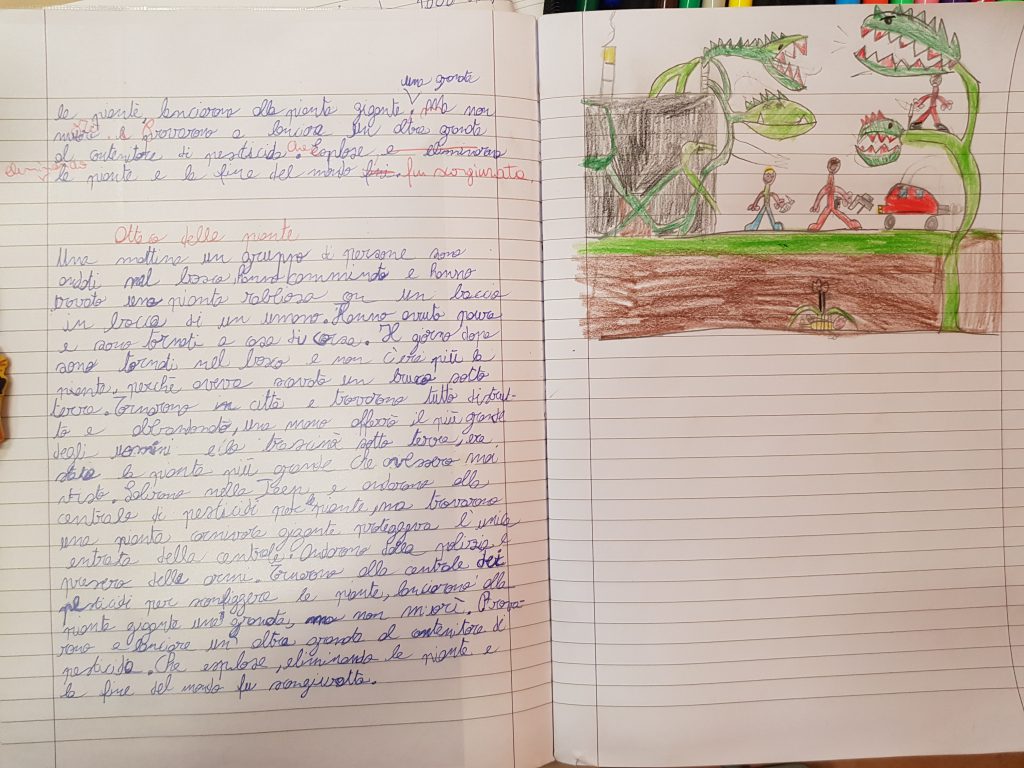 una granata
le piante lanciarono alla pianta gigante. Ma non
morì e provarono a lanciare un altra granata
al contenitore di pesticida. Che Esplose e eliminarono
eliminando
le piante e la fine del mondo fu scongiurata.
delle piante
Una mattina un gruppo di persone sono
andati nel bosco, hanno camminato e hanno
trovato una pianta rabbiosa con un braccio
in bocca di un umano. Hanno avuto paura
e sono tornati a casa di corsa. Il giorno dopo
sono tornati nel bosco e non c'era più la
piante, perché aveva scavato un buco sotto
terra. Tornarono in città e trovarono tutto distrut-
to e abbandonato, una mano afferrò il più grande
degli uomini e la trascinò sotto terra, era
la pianta più grande che avessero mai
visto. Salirono nella Jeep e andarono alla
centrale di pesticidi per le piante, ma trovarono
una pianta carnivora gigante proteggeva l'unica
entrata della centrale. Andarono dalla polizia e
presero delle armi. Tornarono alla centrale dei
pesticidi per sconfiggere le piante, lanciarono alla
pianta gigante una granata, ma non morì. Prova-
rono a lanciare un altra granata al contenitore di
pesticida. Che esplose, eliminando le piante e
la fine del mondo fu scongiurata.